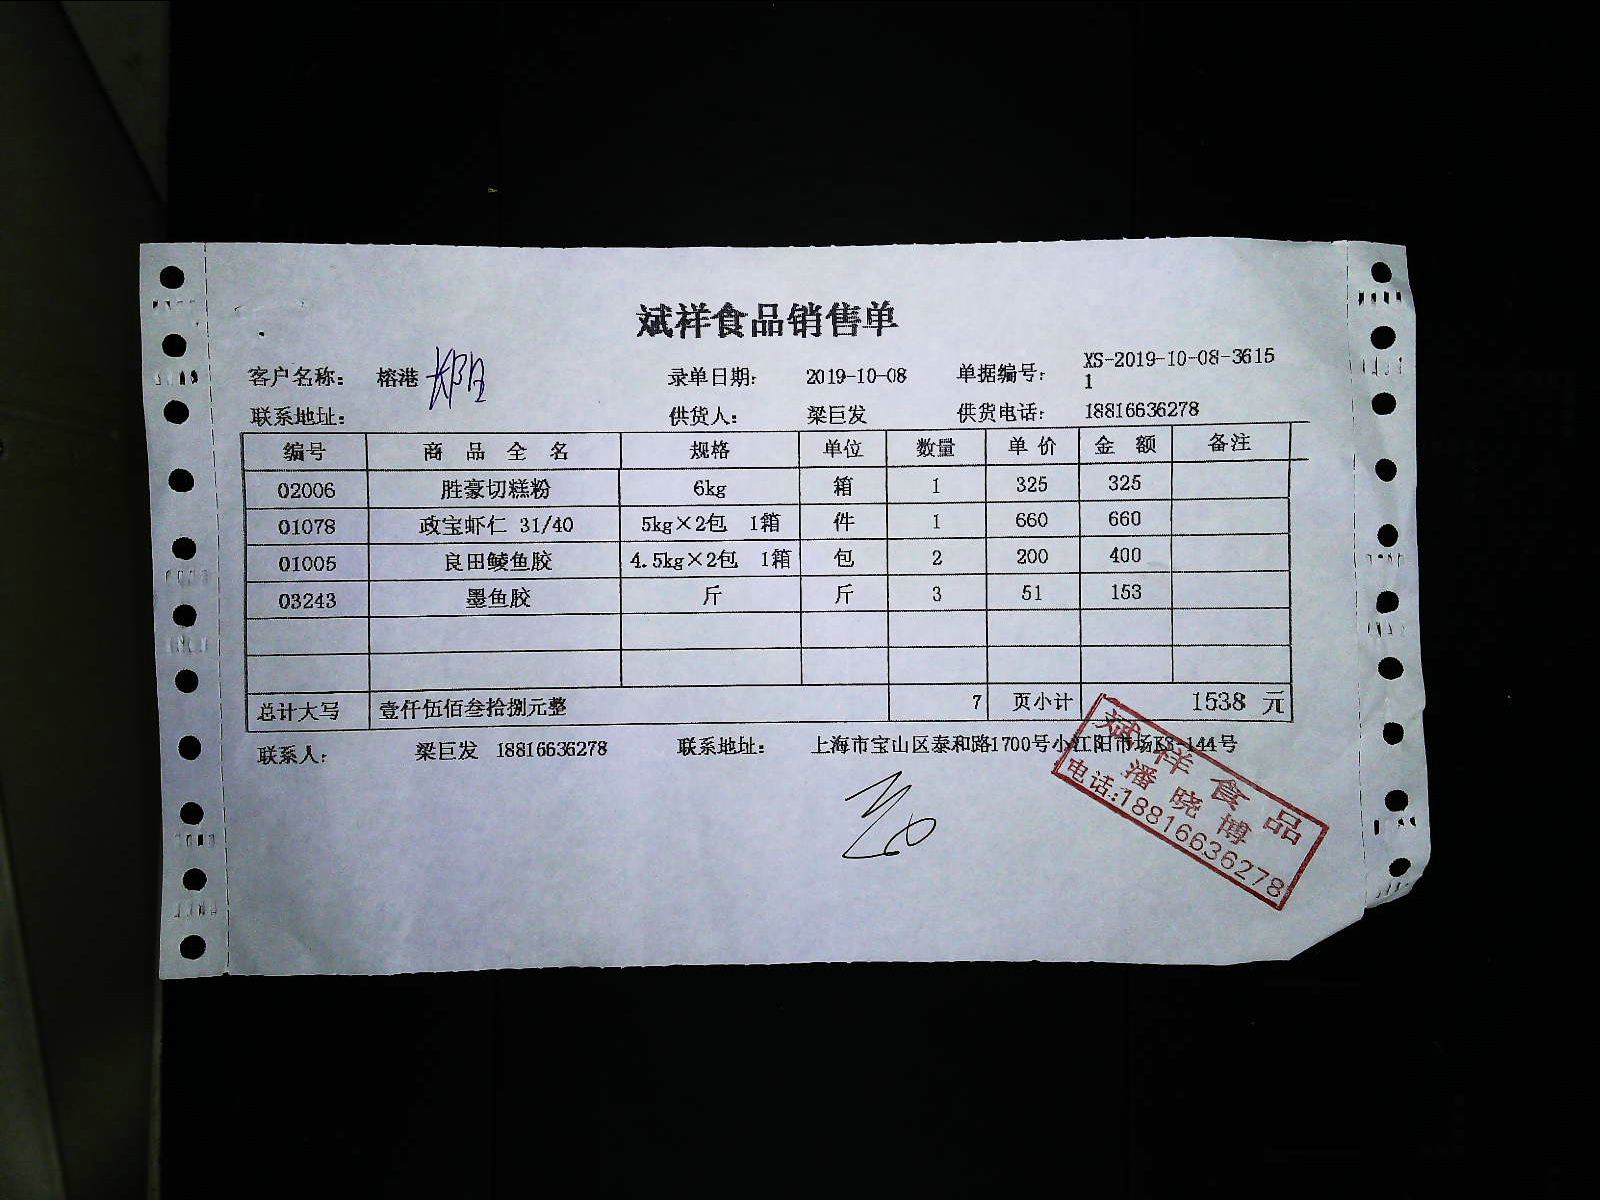 斌祥食品销售单
客户名称： 榕港 录单日期： 2019-10-08 单据编号： XS-2019-10-08-3615
1
联系地址： 供货人： 梁巨发 供货电话： 18816636278
编号 商 品 全 名 规格 单位 数量 单 价 金 额 备注
02006 胜豪切糕粉 6kg 箱 1 325 325
01078 政宝虾仁 31/40 5kg×2包 1箱 件 1 660 660
01005 良田鲮鱼胶 4.5kg×2包 1箱 包 2 200 400
03243 墨鱼胶 斤 斤 3 51 153
总计大写 壹仟伍佰叁拾捌元整 7 页小计 1538 元
联系人： 梁巨发 18816636278 联系地址： 上海市宝山区泰和路1700号小江阳市场K3-144号
斌祥食品
潘晓博
电话:18816636278